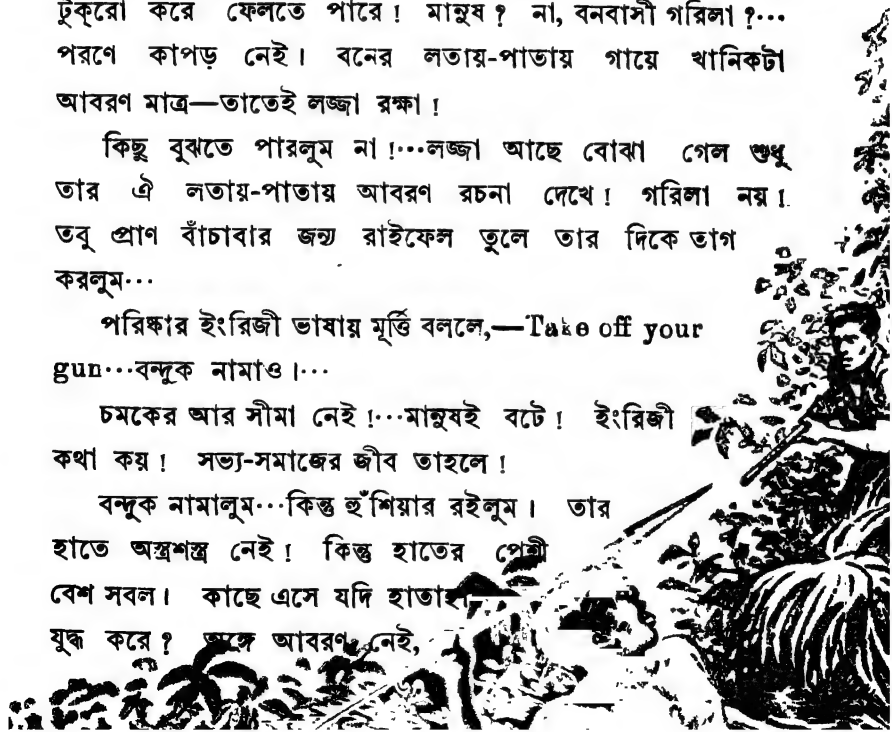 টুক্‌রো করে ফেলতে পারে! মানুষ? না, বনবাসী গরিলা?···
পরণে কাপড় নেই। বনের লতায়-পাতায় গায়ে খানিকটা
আবরণ মাত্র—তাতেই লজ্জা রক্ষা!
কিছু বুঝতে পারলুম না!···লজ্জা আছে বোঝা গেল শুধু
তার ঐ লতায়-পাতায় আবরণ রচনা দেখে! গরিলা নয়!
তবু প্রাণ বাঁচাবার জন্য রাইফেল তুলে তার দিকে তাগ
করলুম···
পরিষ্কার ইংরিজী ভাষায় মূর্ত্তি বললে,—Take off your
gun···বন্দুক নামাও।···
চমকের আর সীমা নেই!···মানুষই বটে! ইংরিজী
কথা কয়! সভ্য-সমাজের জীব তাহলে!
বন্দুক নামালুম···কিন্তু হুঁশিয়ার রইলুম। তার
হাতে অস্ত্রশস্ত্র নেই! কিন্তু হাতের পেশী
বেশ সবল। কাছে এসে যদি
যুদ্ধ করে? অঙ্গে আবরণ নেই,